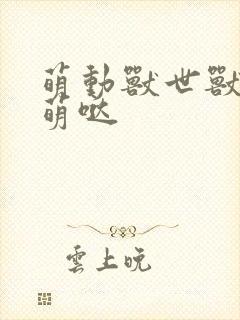 萌動獸世獸
萌噠
雲上晚